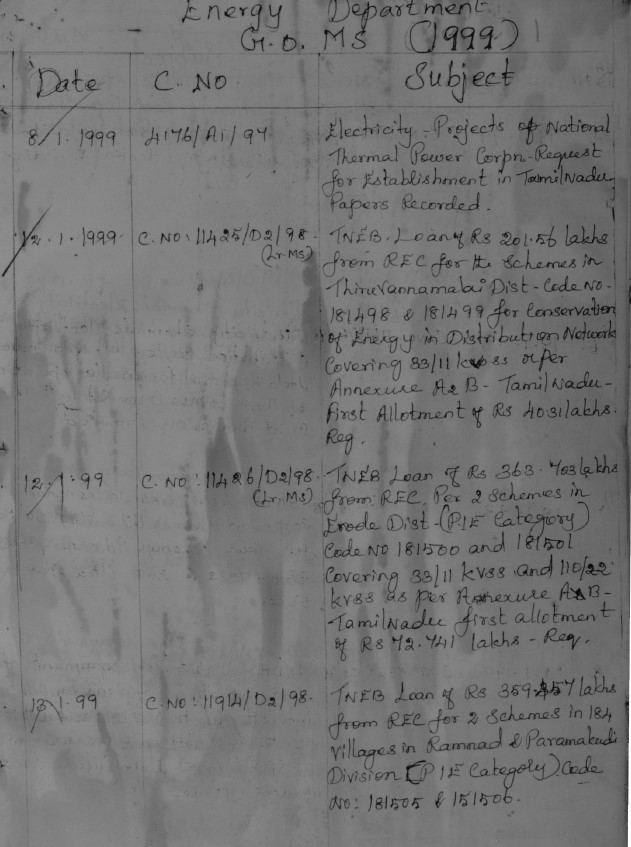 Energy Department
G.O. MS (1999)
Date C. NO Subject
8/1.1999 4176/A1/97 Electricity - Projects of National
Thermal Power Corpn-Request
for Establishment in TamilNadu
Papers Recorded.
12.1.1999 C.NO: 11425/D2/98. TNEB. Loan of Rs 201.56 lakhs
(Lr.MS) from REC for the Schemes in
Thiruvannamalai Dist - Code No.
181498 & 181499 for Conservation
of Energy in Distribution Network
Covering 33/11 kvss as per
Annexure A & B - TamilNadu -
First Allotment of Rs 40.31 lakhs.
Reg.
12.1.99 C.NO: 11426/D2/98. TNEB Loan of Rs 363.703 lakhs
(Lr.MS) from REC Per 2 Schemes in
Erode Dist - (P.I E Category)
Code NO 181500 and 181501
Covering 33/11 kvss and 110/22
kvss as per Annexure A & B -
TamilNadu first allotment
of Rs 72.741 lakhs - Reg.
13.1.99 C.NO: 11914/D2/98. TNEB Loan of Rs 359. lakhs
from REC for 2 Schemes in 184
Villages in Ramnad & Paramakudi
Division (P I E Category) Code
No: 181505 & 151506.